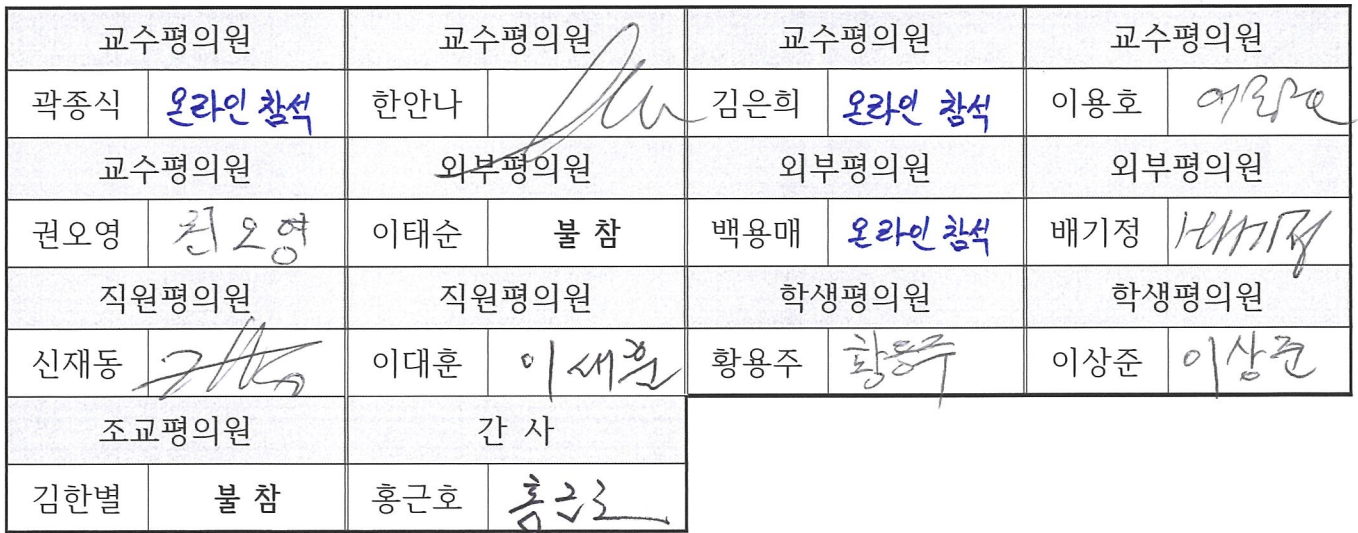 교수평의원 교수평의원 교수평의원 교수평의원
곽종식 온라인 참석 한안나 김은희 온라인 참석 이용호
교수평의원 외부평의원 외부평의원 외부평의원
권오영 권오영 이태순 불 참 백용매 온라인 참석 배기정 배기정
직원평의원 직원평의원 학생평의원 학생평의원
신재동 이대훈 황용주 황용주 이상준 이상준
조교평의원 간 사
김한별 불 참 홍근호 홍근호